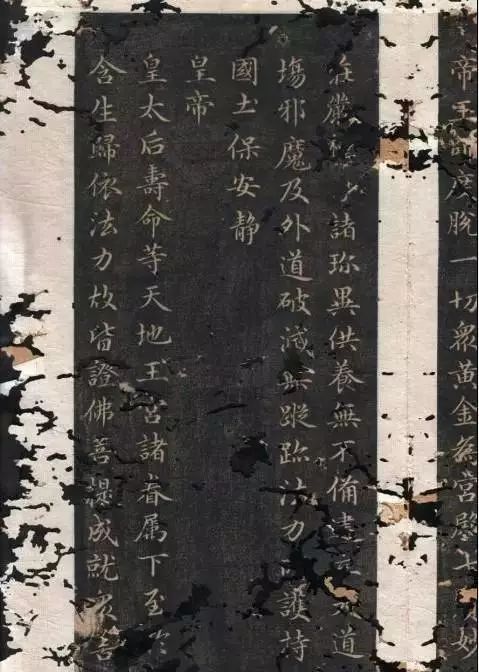 帝王度脫一切眾黃金為宮殿七妙
莊嚴諸珍異供養無不備建道
塲邪魔及外道破滅無蹤跡法力護持
國土保安靜
皇帝
皇太后壽命等天地王宮諸眷屬下至
含生歸依法力故皆證佛菩提成就眾善